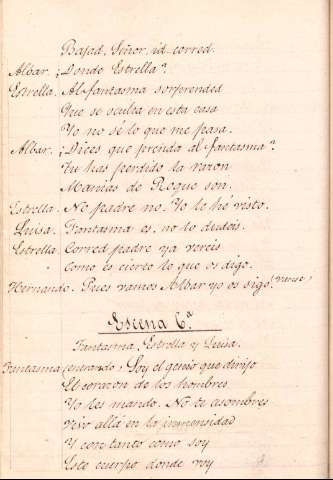 Bajad, Señor, id corred.
Albar. ¿Donde Estrella?
Estrella. Al fantasma sorprended
Que se oculta en esta casa
Yo no sé lo que me pasa.
Albar. ¿Dices que prenda al fantasma?
Tu has perdido la razon
Manias de Roque son.
Estrella. No padre no. Yo le he visto.
Luisa. Fantasma es, no lo dudeis.
Estrella Corred padre ya vereis
" Como es cierto lo que os digo.
Hernando. Pues vamos Albar yo os sigo (vanse)
Escena 6.ª
Fantasma, Estrella y Luisa.
Fantasma (entrando) Soy el genio que dirijo
El corazon de los hombres
Yo les mando. No te asombres
Vivir allá en la inmensidad
Y con tanto como soy
Este cuerpo donde voy